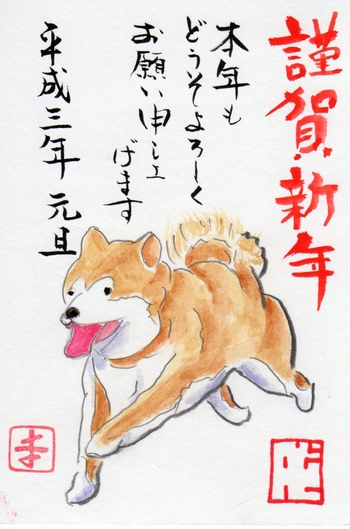 謹賀新年
本年も
どうぞよろしく
お願い申し上
げます
平成三年 元旦